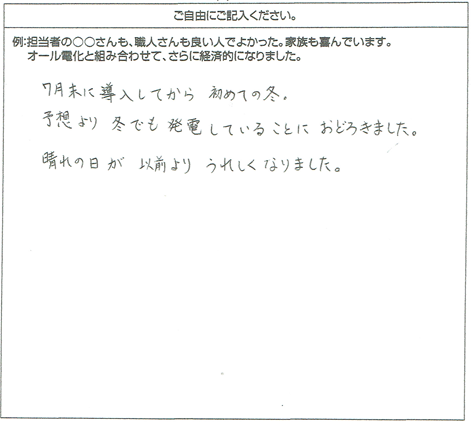 ご自由にご記入ください。
例:担当者の○○さんも、職人さんも良い人でよかった。家族も喜んでいます。
オール電化と組み合わせて、さらに経済的になりました。
7月末に導入してから 初めての冬。
予想より 冬でも発電していることに おどろきました。
晴れの日が 以前より うれしくなりました。